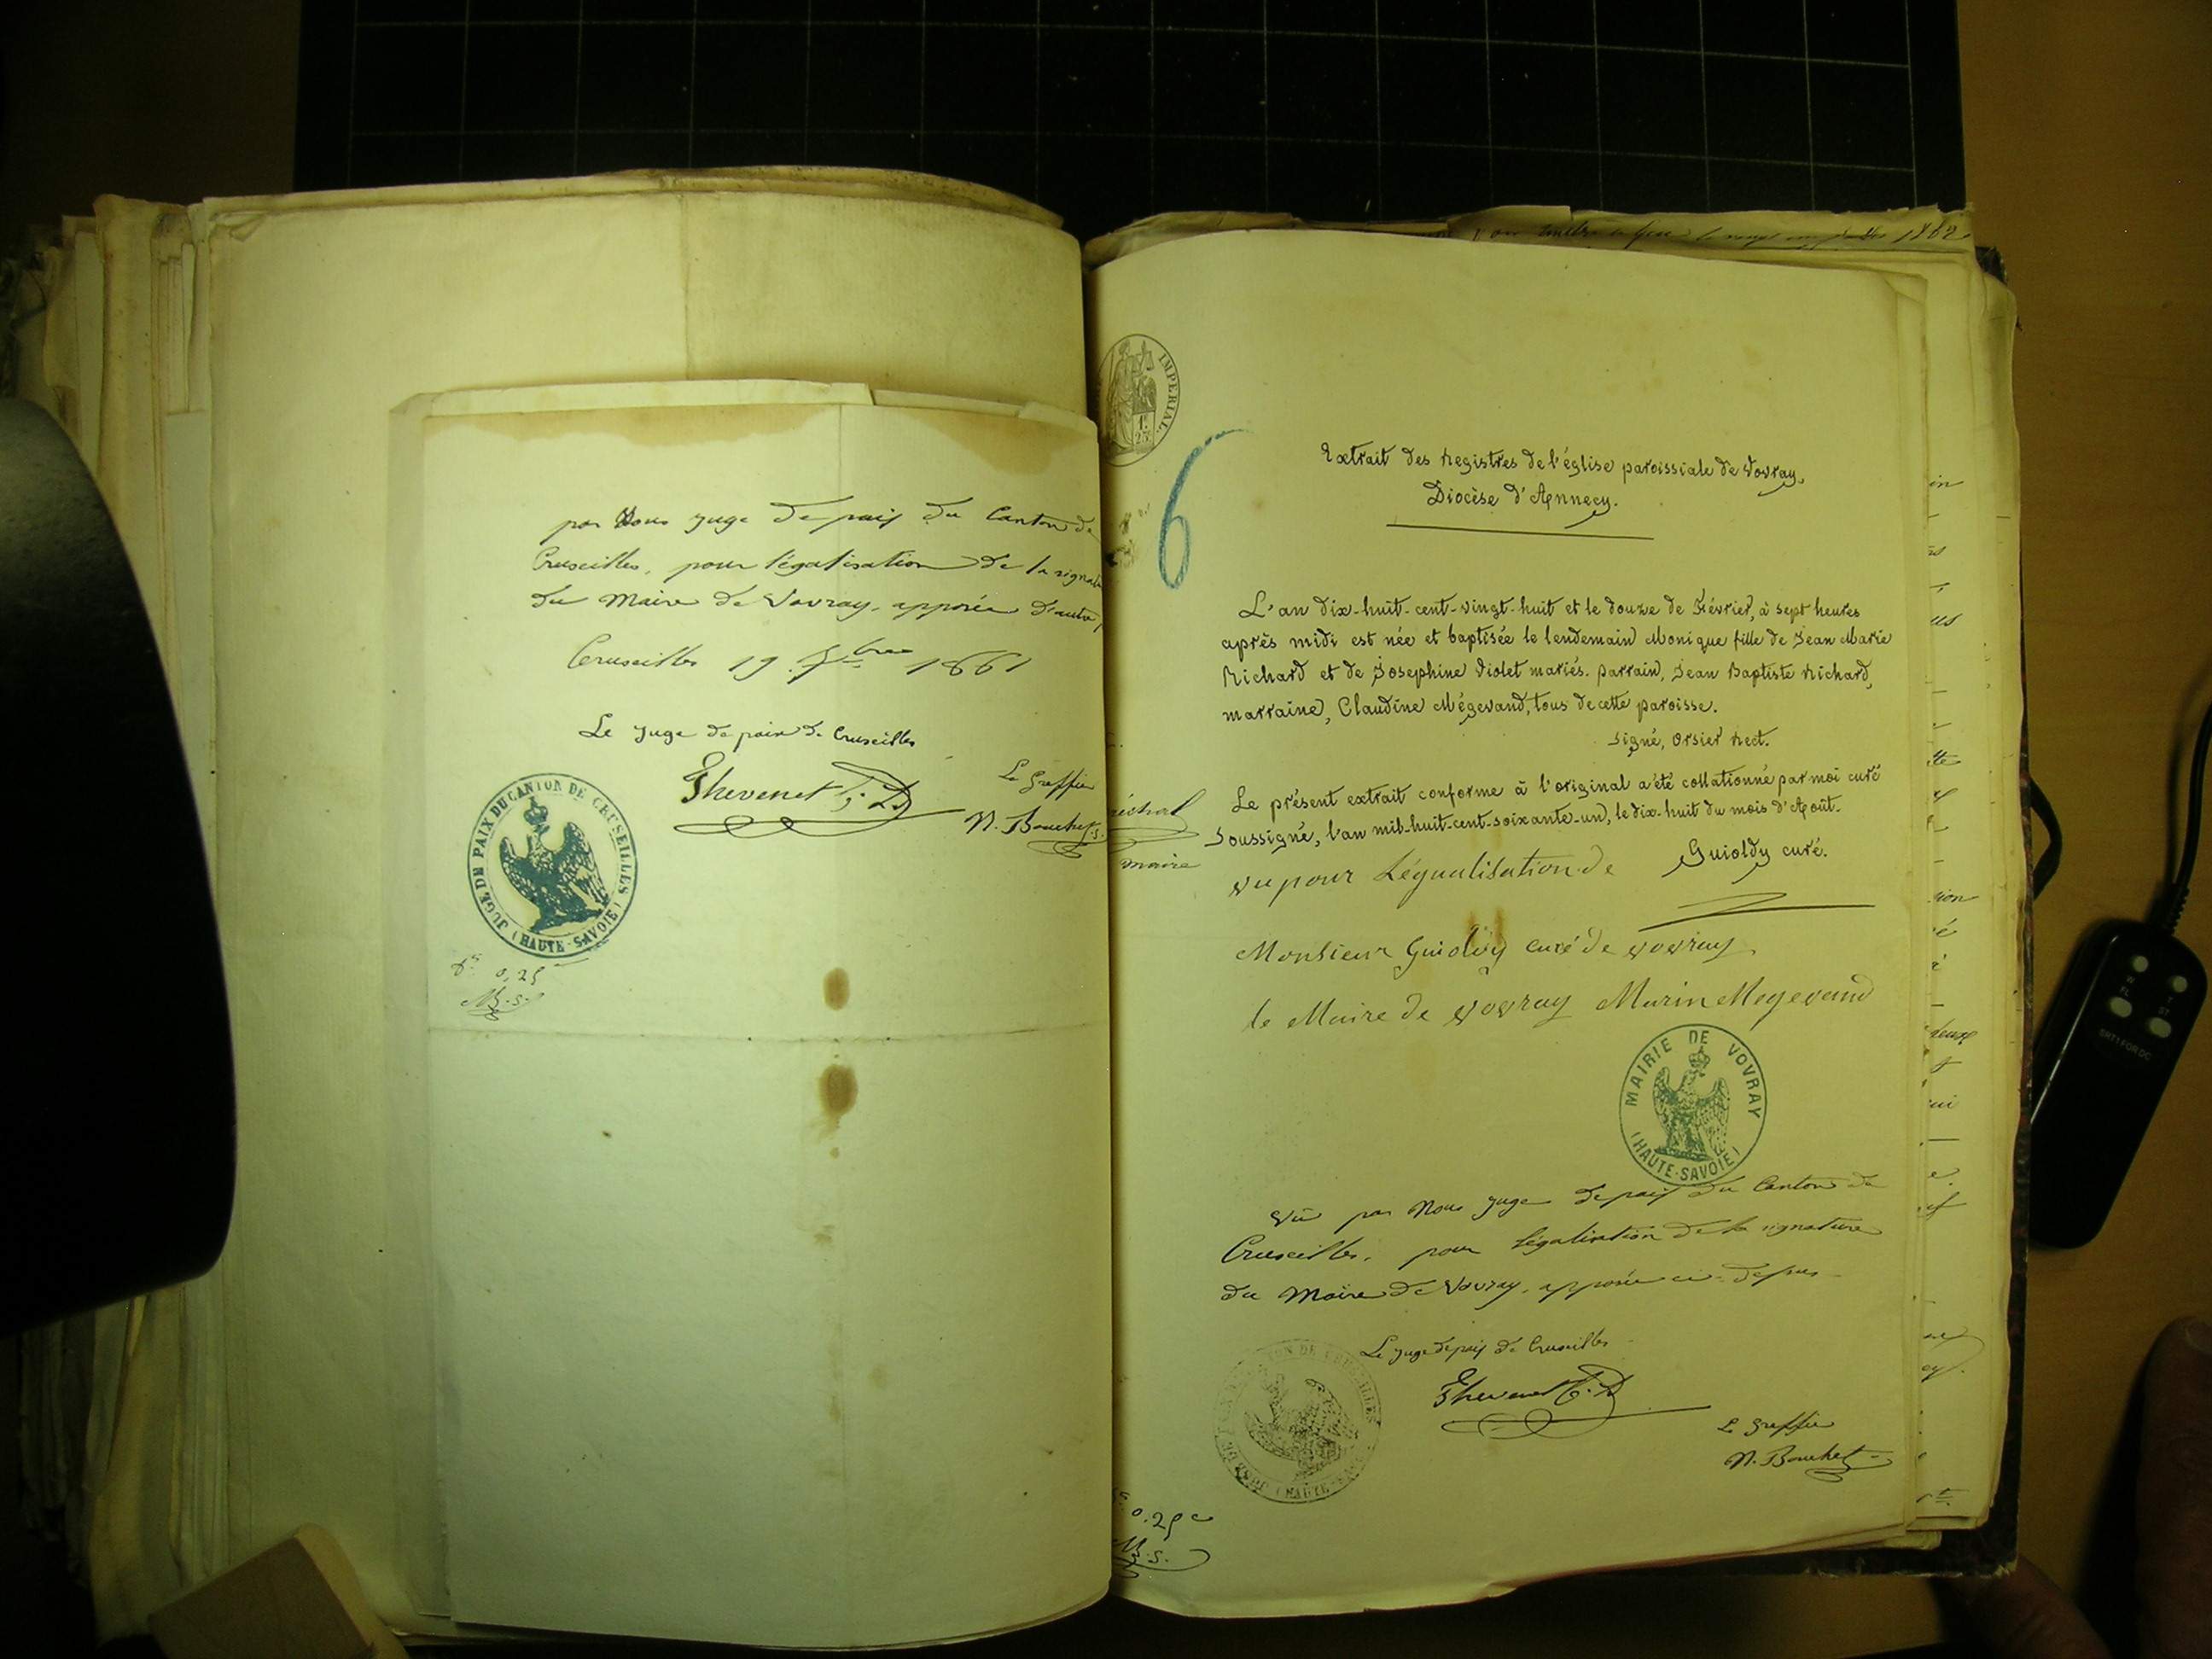 par Nous juge de paix du Canton de
Cruseilles, pour légalisation de la signat
du Maire de Vovray, apposée d'autre
Cruseilles 19 7bre 1861
Le juge de paix de Cruseilles
Thevenet
Le Greffier
N. Bouchet
JUGE DE PAIX DU CANTON DE CRUSEILLES
(HAUTE-SAVOIE)
0,25
1862
IMPERIAL
6
Extrait des Registres de l'église paroissiale de Vovray,
Diocèse d'Annecy.
L'an dix-huit-cent-vingt-huit et le douze de Février, à sept heures
après midi est née et baptisée le lendemain Monique fille de Jean Marie
Richard et de Josephine Violet mariés. parrain, Jean Baptiste Richard,
marraine, Claudine Mégevand, tous de cette paroisse.
Signé, Orsier Rect.
Le présent extrait conforme à l'original a été collationné par moi curé
soussigné, l'an mil-huit-cent-soixante-un, le dix-huit du mois d'Août.
Guioldy curé.
vu pour Légualisation de
Monsieur Guioldy curé de vovray
le Maire de vovray Marin Megevand
MAIRIE DE VOVRAY
(HAUTE-SAVOIE)
Vû par Nous juge de paix du Canton de
Cruseilles, pour légalisation de la signature
du Maire de Vovray, apposée ci-dessus
Le juge de paix de Cruseilles
Thevenet
Le Greffier
N. Bouchet
maire
0.25 c